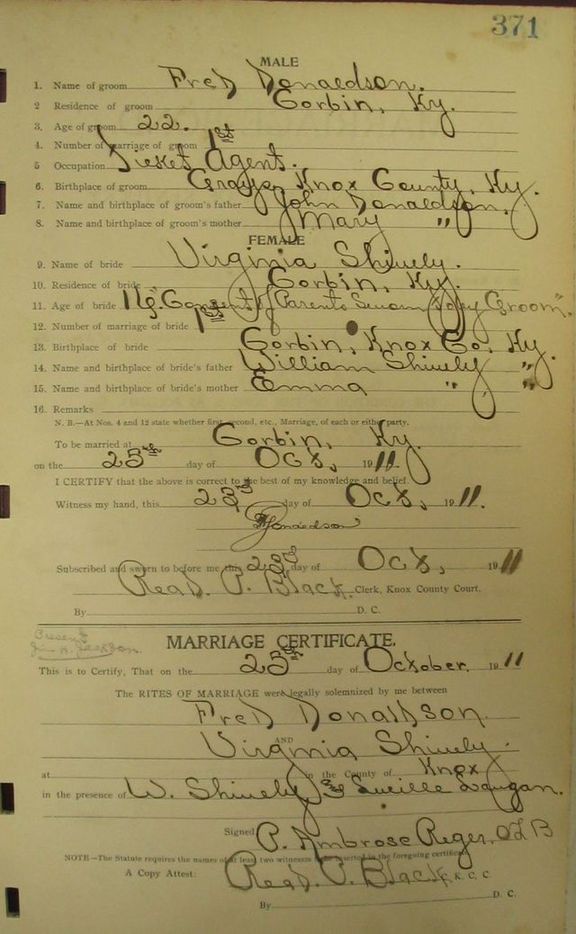 371
MALE
1. Name of groom Fred Donaldson.
2 Residence of groom Corbin, Ky.
3. Age of groom 22.
4. Number of marriage of groom 1st
5 Occupation Ticket Agent.
6. Birthplace of groom Grays, Knox County, Ky.
7. Name and birthplace of groom's father John Donaldson.
8. Name and birthplace of groom's mother Mary "
FEMALE
9. Name of bride Virginia Shively.
10. Residence of bride Corbin, Ky.
11. Age of bride 19. "Consent of Parents Sworn to by Groom".
12. Number of marriage of bride 1st
13. Birthplace of bride Corbin, Knox Co. Ky.
14. Name and birthplace of bride's father William Shively "
15. Name and birthplace of bride's mother Emma " "
16. Remarks
N. B.—At Nos. 4 and 12 state whether first, second, etc., Marriage, of each or either party.
To be married at Corbin, Ky.
on the 25th day of Oct, 1911.
I CERTIFY that the above is correct to the best of my knowledge and belief.
Witness my hand, this 23d day of Oct, 1911.
Donaldson
Subscribed and sworn to before me this 23d day of Oct, 1911
Read P. Black, Clerk, Knox County Court.
By D. C.
Present
MARRIAGE CERTIFICATE.
This is to Certify, That on the 25th day of October 1911
The RITES OF MARRIAGE were legally solemnized by me between
Fred Donaldson
AND
Virginia Shively.
at in the County of Knox
in the presence of W. Shively & Lucille
Signed P. Ambrose Reger, O.S.B
NOTE—The Statute requires the names of at least two witnesses to be inserted in the foregoing certificate
A Copy Attest: Read P. Black K. C. C.
By D. C.